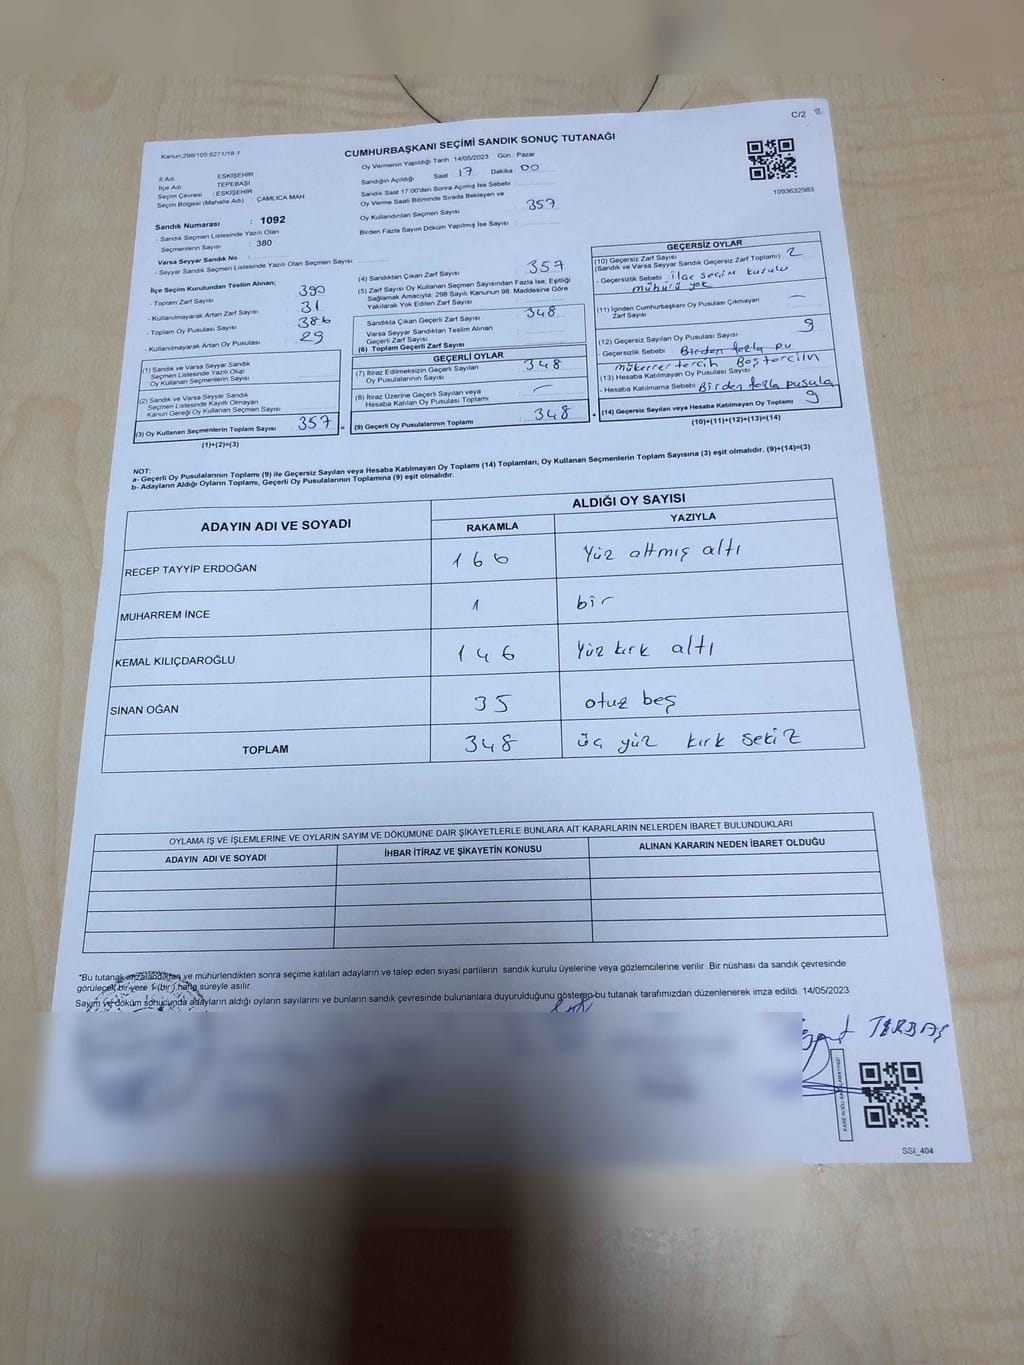 C/2
Kanun:298/105,6271/18-1
CUMHURBAŞKANI SEÇİMİ SANDIK SONUÇ TUTANAĞI
Oy Vermenin Yapıldığı Tarih 14/05/2023 Gün : Pazar
İl Adı ESKİŞEHİR
İlçe Adı TEPEBAŞI
Seçim Çevresi : ESKİŞEHİR
Seçim Bölgesi (Mahalle Adı) ÇAMLICA MAH
Sandık Numarası : 1092
- Sandık Seçmen Listesinde Yazılı Olan
Seçmenlerin Sayısı : 380
Varsa Seyyar Sandık No :
- Seyyar Sandık Seçmen Listesinde Yazılı Olan Seçmen Sayısı :
Sandığın Açıldığı Saat 17 Dakika 00
Sandık Saat 17:00'den Sonra Açılmış İse Sebebi :
Oy Verme Saati Bitiminde Sırada Bekleyen ve
Oy Kullandırılan Seçmen Sayısı : 357
Birden Fazla Sayım Döküm Yapılmış İse Sayısı :
1093632983
İlçe Seçim Kurulundan Teslim Alınan;
- Toplam Zarf Sayısı : 390
- Kullanılmayarak Artan Zarf Sayısı : 31
- Toplam Oy Pusulası Sayısı : 386
- Kullanılmayarak Artan Oy Pusulası : 29
(1) Sandık ve Varsa Seyyar Sandık
Seçmen Listesinde Yazılı Olup
Oy Kullanan Seçmenlerin Sayısı
(2) Sandık ve Varsa Seyyar Sandık
Seçmen Listesinde Kayıtlı Olmayan
Kanun Gereği Oy Kullanan Seçmen Sayısı
(3) Oy Kullanan Seçmenlerin Toplam Sayısı : 357
(1)+(2)=(3)
(4) Sandıktan Çıkan Zarf Sayısı : 357
(5) Zarf Sayısı Oy Kullanan Seçmen Sayısından Fazla İse, Eşitliği
Sağlamak Amacıyla; 298 Sayılı Kanunun 98. Maddesine Göre
Yakılarak Yok Edilen Zarf Sayısı :
Sandıkta Çıkan Geçerli Zarf Sayısı : 348
Varsa Seyyar Sandıktan Teslim Alınan
Geçerli Zarf Sayısı
(6) Toplam Geçerli Zarf Sayısı
GEÇERLİ OYLAR
(7) İtiraz Edilmeksizin Geçerli Sayılan
Oy Pusulalarının Sayısı : 348
(8) İtiraz Üzerine Geçerli Sayılan veya
Hesaba Katılan Oy Pusulası Toplamı : —
(9) Geçerli Oy Pusulalarının Toplamı : 348
GEÇERSİZ OYLAR
(10) Geçersiz Zarf Sayısı
(Sandık ve Varsa Seyyar Sandık Geçersiz Zarf Toplamı) : 2
- Geçersizlik Sebebi : ilçe seçim kurulu
mühürü yok
(11) İçinden Cumhurbaşkanı Oy Pusulası Çıkmayan
Zarf Sayısı : —
(12) Geçersiz Sayılan Oy Pusulası Sayısı : 9
- Geçersizlik Sebebi : Birden fazla pu
mükerrer tercih Boş
(13) Hesaba Katılmayan Oy Pusulası Sayısı
- Hesaba Katılmama Sebebi : Birden fazla pusula
(14) Geçersiz Sayılan veya Hesaba Katılmayan Oy Toplamı : 9
(10)+(11)+(12)+(13)=(14)
NOT:
a- Geçerli Oy Pusulalarının Toplamı (9) ile Geçersiz Sayılan veya Hesaba Katılmayan Oy Toplamı (14) Toplamları, Oy Kullanan Seçmenlerin Toplam Sayısına (3) eşit olmalıdır. (9)+(14)=(3)
b- Adayların Aldığı Oyların Toplamı, Geçerli Oy Pusulalarının Toplamına (9) eşit olmalıdır.
ADAYIN ADI VE SOYADI ALDIĞI OY SAYISI
RAKAMLA YAZIYLA
RECEP TAYYİP ERDOĞAN 166 Yüz altmış altı
MUHARREM İNCE 1 bir
KEMAL KILIÇDAROĞLU 146 Yüz kırk altı
SİNAN OĞAN 35 otuz beş
TOPLAM 348 üç yüz kırk sekiz
OYLAMA İŞ VE İŞLEMLERİNE VE OYLARIN SAYIM VE DÖKÜMÜNE DAİR ŞİKAYETLERLE BUNLARA AİT KARARLARIN NELERDEN İBARET BULUNDUKLARI
ADAYIN ADI VE SOYADI İHBAR İTİRAZ VE ŞİKAYETİN KONUSU ALINAN KARARIN NEDEN İBARET OLDUĞU
*Bu tutanak imzalandıktan ve mühürlendikten sonra seçime katılan adayların ve talep eden siyasi partilerin sandık kurulu üyelerine veya gözlemcilerine verilir .Bir nüshası da sandık çevresinde
görülecek bir yere 1 (bir) hafta süreyle asılır.
Sayım ve döküm sonucunda adayların aldığı oyların sayılarını ve bunların sandık çevresinde bulunanlara duyurulduğunu gösteren bu tutanak tarafımızdan düzenlenerek imza edildi. 14/05/2023
SSI_404